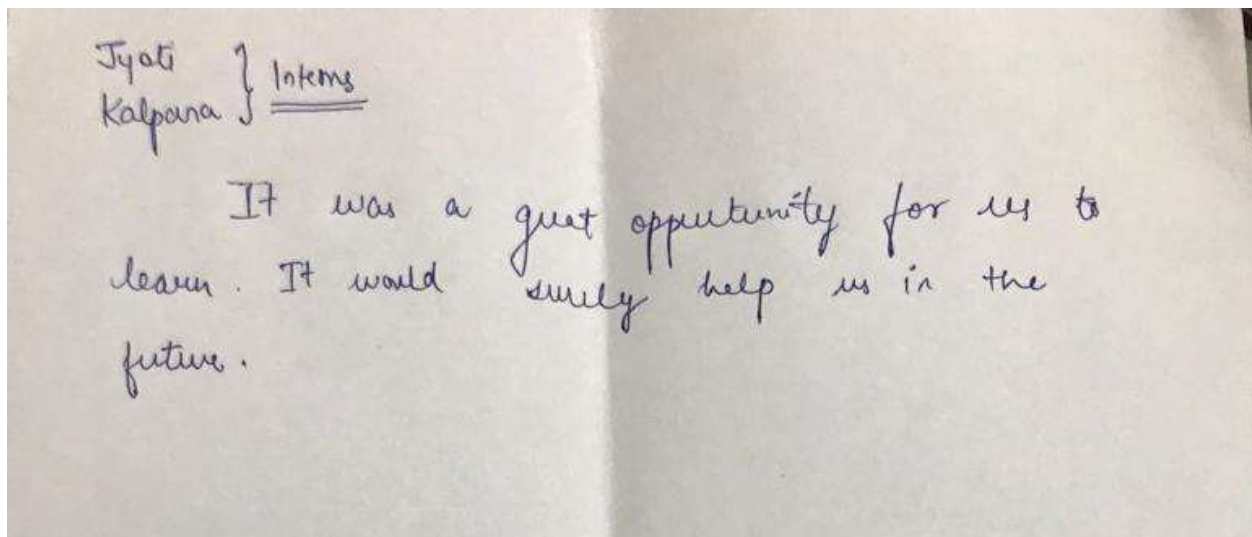 Jyoti } Interns
Kalpana
It was a great oppurtunity for us to
learn. It would surely help us in the
future.